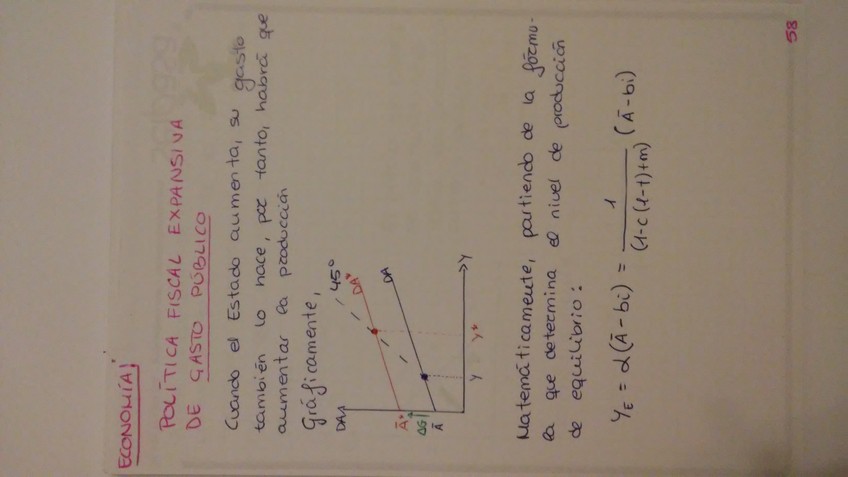 ECONOMÍA!
POLÍTICA FISCAL EXPANSIVA
DE GASTO PÚBLICO
Cuando el Estado aumenta, su gasto
también lo hace, por tanto, habrá que
aumentar la producción
Gráficamente,
DA
45°
DA*
DA
Ā*
ΔG
Ā
Y
Y*
Y
Matemáticamente, partiendo de la fórmu-
la que determina el nivel de producción
de equilibrio:
Y_E = α(Ā-bi) = 1/(1-c(1-t)+m) (Ā-bi)
58